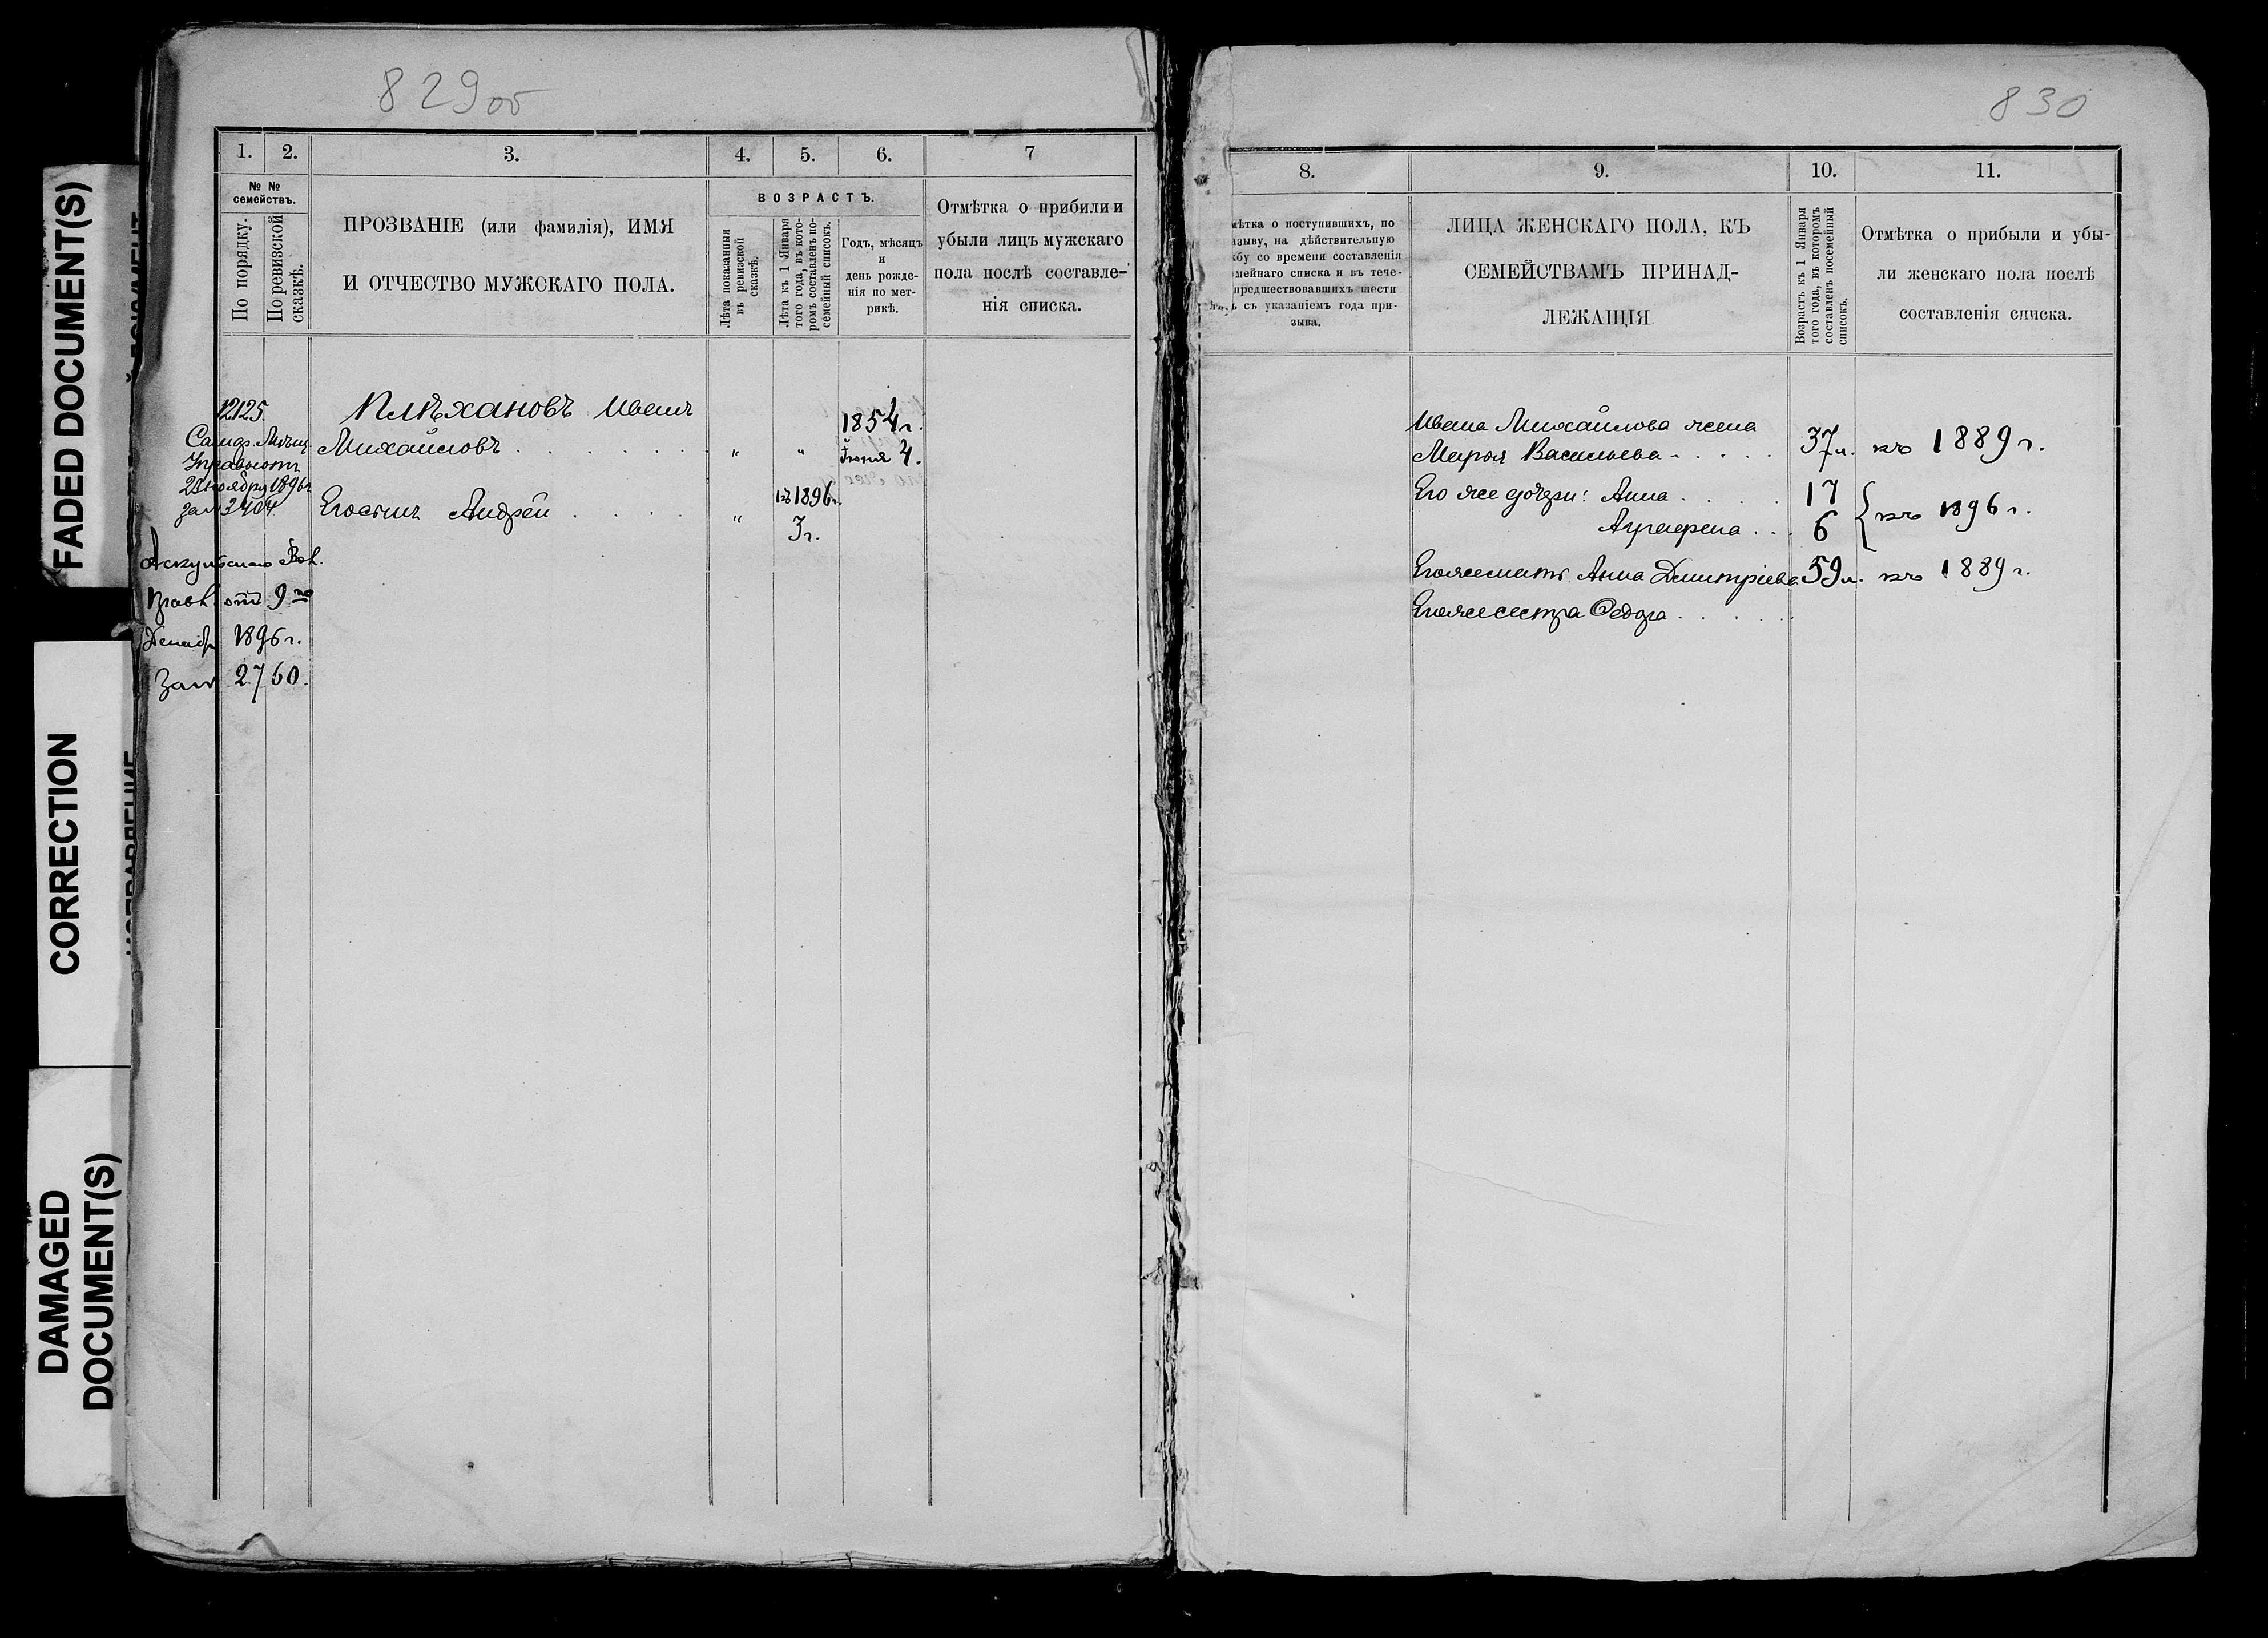 829об
1. 2. 3. 4. 5. 6. 7
№ № семействъ.
По порядку.
По ревизской сказкѣ.
ПРОЗВАНІЕ (или фамилія), ИМЯ
И ОТЧЕСТВО МУЖСКАГО ПОЛА.
ВОЗРАСТЪ.
Лѣта показанныя
въ ревизской
сказкѣ.
Лѣта къ 1 Января
того года, въ кото-
ромъ составленъ по-
семейный списокъ.
Годъ, мѣсяцъ
и
день рожде-
нія по мет-
рикѣ.
Отмѣтка о прибыли и
убыли лицъ мужскаго
пола послѣ составле-
нія списка.
12125.
Плѣхановъ Иванъ
1854 г.
Михайловъ . . . . . . . „ „ Іюня 4.
25 ноября 1896 г.
за № 3404
Его сынъ Андрей . . . . „
къ 1896 г.
3 г.
Вол.
Правл. отъ 9го
Декабр 1896 г.
За № 2760.
830
8. 9. 10. 11.
мѣтка о поступившихъ, по
изыву, на дѣйствительную
жбу со времени составленія
мейнаго списка и въ тече-
предшествовавшихъ шести
ь съ указаніемъ года при-
зыва.
ЛИЦА ЖЕНСКАГО ПОЛА, КЪ
СЕМЕЙСТВАМЪ ПРИНАД-
ЛЕЖАЩІЯ
Возрастъ къ 1 Января
того года, въ которомъ
составленъ посемейный
списокъ.
Отмѣтка о прибыли и убы-
ли женскаго пола послѣ
составленія списка.
Ивана Михайлова жена
Марья Васильева . . . . 37 л. къ 1889 г.
Его же дочери: Анна . . . . 17
Аграфена . . . 6 къ 1896 г.
Его же мать Анна Дмитріева 59 л. къ 1889 г.
Его же сестра Ѳедора . . . . .
FADED DOCUMENT(S)
CORRECTION
DAMAGED
DOCUMENT(S)